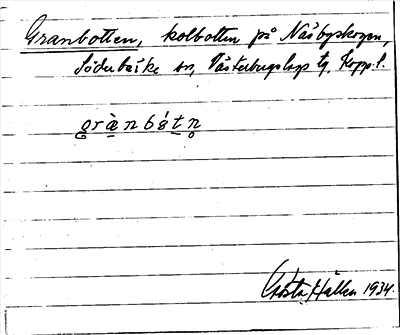 Granbotten, kolbotten på Näsbyskogen,
Söderbärke sn, Västerbergslags tg. Kopp. l.
grànbót̲n̥
Gösta Hallen 1934.